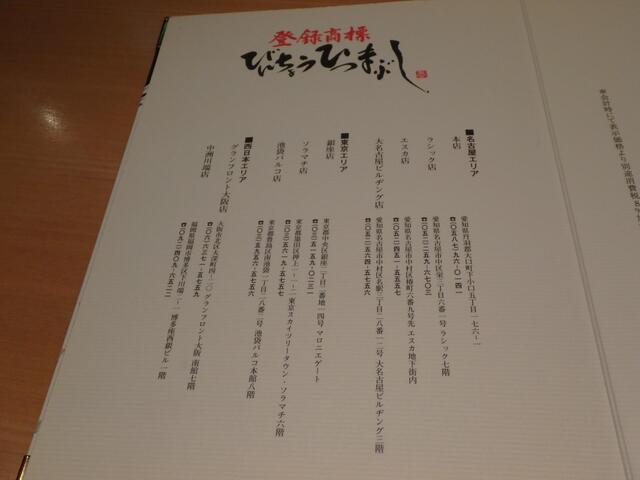 登録商標
びんちょうひつまぶし
■名古屋エリア
本店
愛知県丹羽郡大口町下小口五丁目一七六-一
☎〇五八七-九六-〇一四一
ラシック店
愛知県名古屋市中区栄三丁目六番一号 ラシック七階
☎〇五二-二五九-六七〇三
エスカ店
愛知県名古屋市中村区椿町六番九号先 エスカ地下街内
☎〇五二-四五一-五五五七
大名古屋ビルヂング店
愛知県名古屋市中村区名駅三丁目二八番一二号 大名古屋ビルヂング三階
☎〇五二-五六四-七五五六
■東京エリア
銀座店
東京都中央区銀座二丁目二番地一四号 マロニエゲート
☎〇三-五一五九-〇二三一
ソラマチ店
東京都墨田区押上一-一-二 東京スカイツリータウン・ソラマチ六階
☎〇三-五六一九-五七五五
池袋パルコ店
東京都豊島区南池袋一丁目二八番二号 池袋パルコ本館八階
☎〇三-五九五六-五七五六
■西日本エリア
グランフロント大阪店
大阪市北区大深町四-二〇 グランフロント大阪 南館七階
☎〇六-六三七一-五七五九
中洲川端店
福岡県福岡市博多区下川端二-一 博多座西銀ビル一階
☎〇九二-四〇九-六五二二
※会計時にて表示価格より別途消費税8